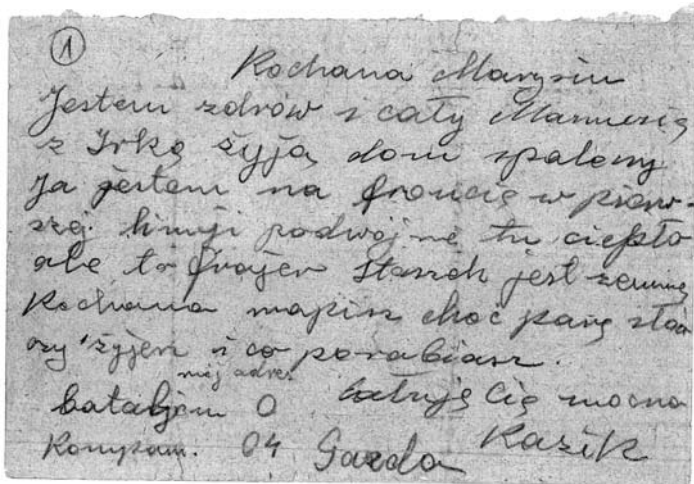 1
Kochana Marysiu
Jestem zdrów i cały Mamusią
z Irką żyją, dom spalony
Ja jestem na froncie w pierw-
szej linji podwójne tu ciepło
ale to frajer Staszek jest zemną
Kochana napisz choć parę słów
czy żyjesz i co porabiasz.
mój adres
batalion O całuję Cię mocno
Kompan. 04 Gazda Kazik